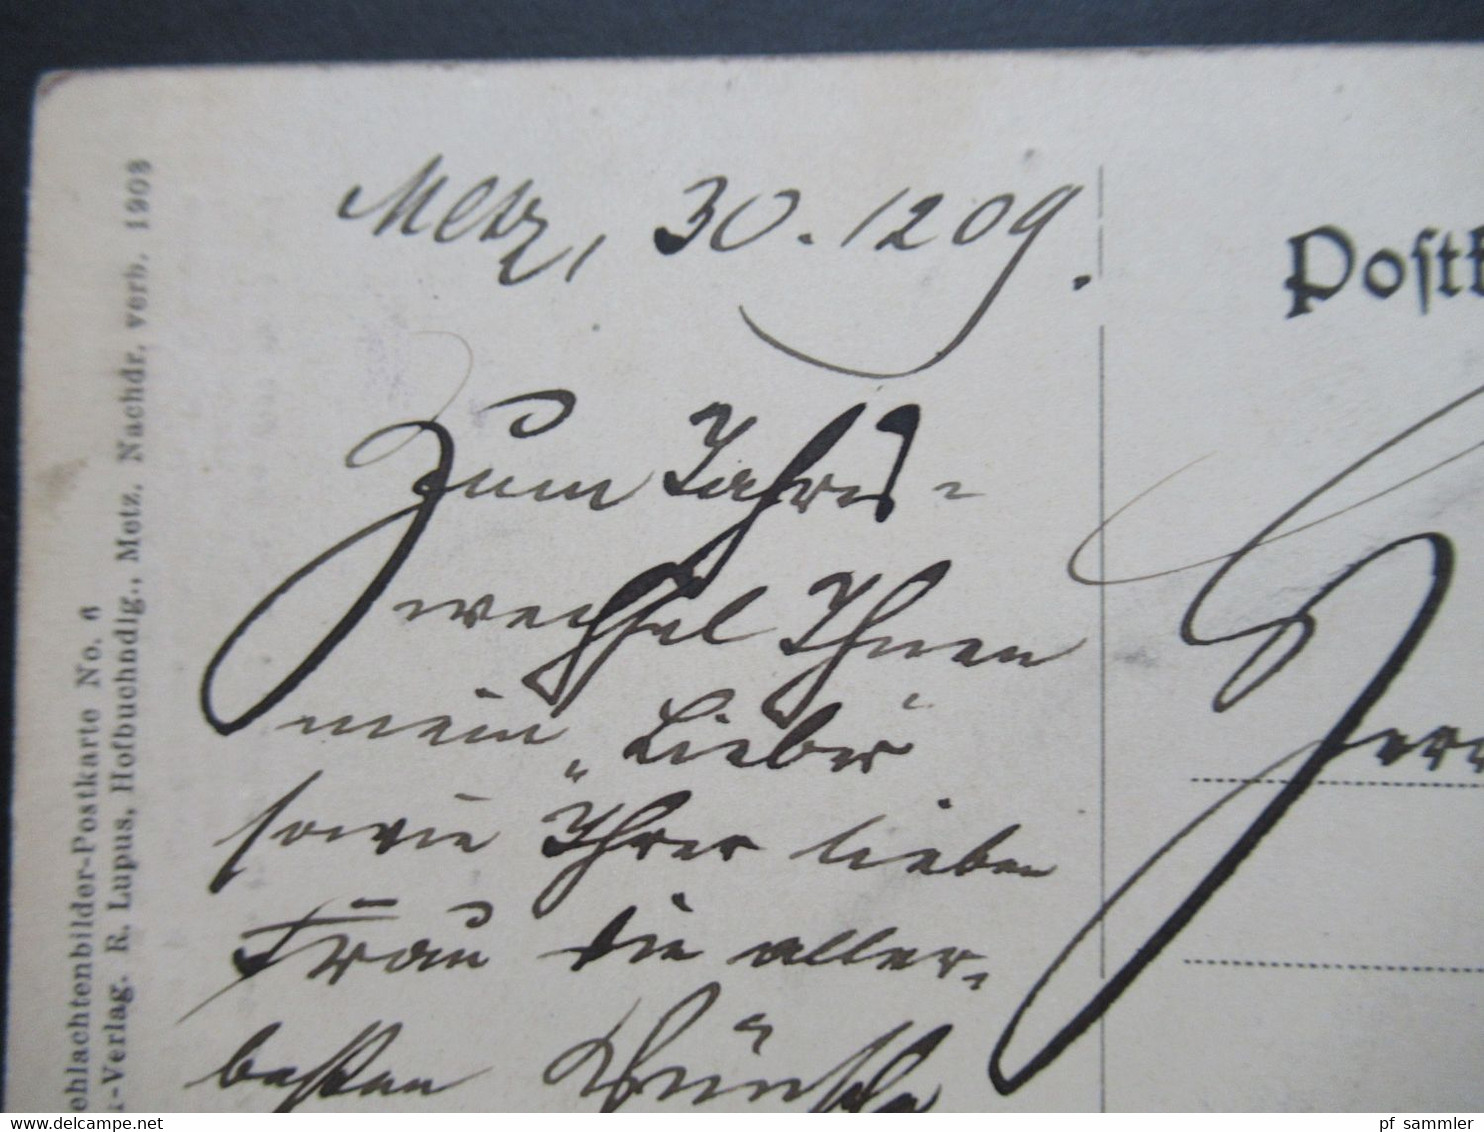 Metz, 30.1209.
Zum Jahres-
wechsel Ihnen
mein „Lieber"
sowie Ihrer lieben
Frau die aller-
besten Wünsche
Postk
Herr
ehlachtenbilder-Postkarte No. 6
-Verlag. R. Lupus, Hofbuchndlg., Metz. Nachdr. verb. 1908
www.delcampe.net
pf_sammler